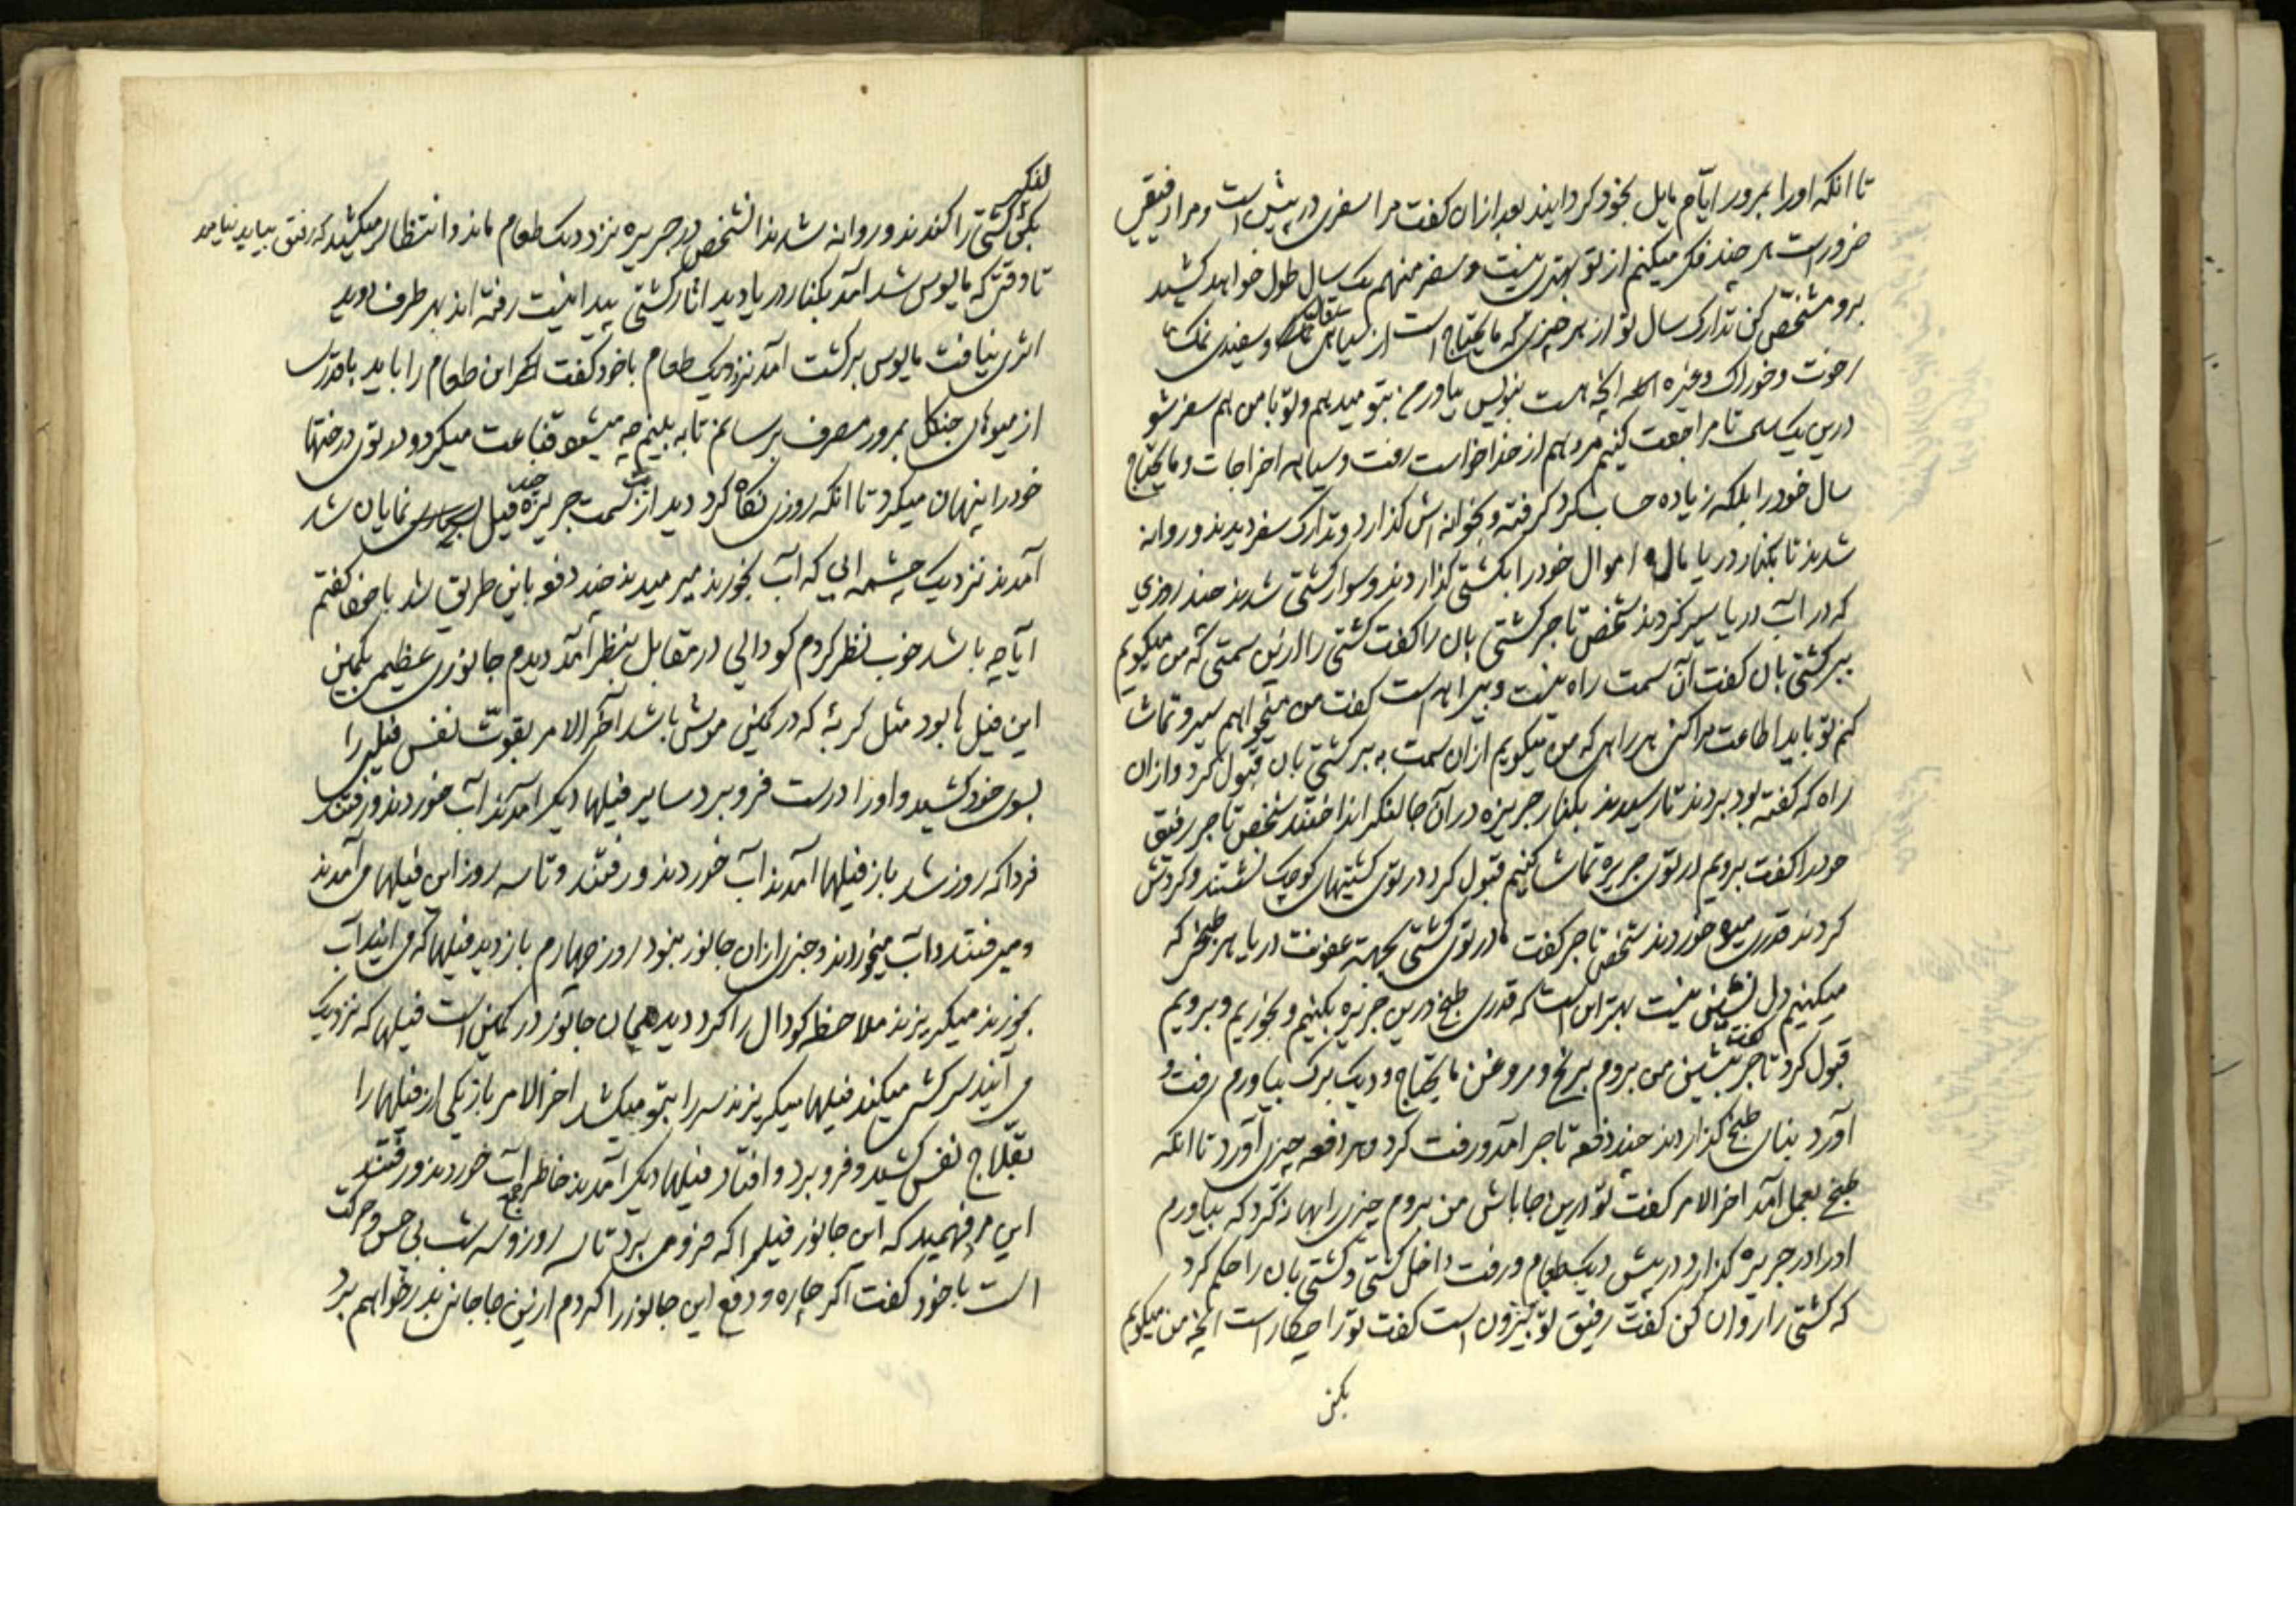 تا انکه اورا بمرور ایّام مایل بخود کردانید بعد ازان کفت مرا سفری در پیش است و مرا رفیقی
ضرور است هر چند فکر میکنم از تو بهتری نیست و سفر منهم یک سال طول خواهد کشید
برو مشخّص کن تدارک سال تو از هر چیزی که مایحتاج است از سیاهی و سفیدی نمک
رخوت و خوراک وغیره انچه هست بنویس بیاور من بتو میدهم و تو با من هم سفر شو
درین یک سال تا مراجعت کنیم مرد هم از خدا خواست رفت و سیاهه اخراجات و مایحتاج
سال خود را بلکه زیاده حساب کرد کرفته و بخانه اش کذارد و تدارک سفر دیدند و روانه
شدند تا بکنار دریا مال و اموال خود را بکشتی کذاردند و سوار کشتی شدند چند روزی
که در آب دریا سیر کردند شخص تاجر کشتی بان را کفت کشتی را ازین سمتی که من میکویم
ببر کشتی بان کفت آن سمت راه نیست و بیراهه است کفت من میخواهم سیر و تماشا
کنم تو باید اطاعت مرا کنی هر راهی که من میکویم ازان سمت به ببر کشتی بان قبول کرد و ازان
راه که کفته بود بردند تا رسیدند بکنار جریزه در آن جا لنکر انداختند شخص تاجر رفیق
خود را کفت برویم در توی جریزه تماشا کنیم قبول کرد در توی کشتیهای کوچک نشستند و کردش
کردند قدری میوه خوردند شخص تاجر کفت ما در توی کشتی بجهة عفونت دریا هر طبخی که
میکنیم دل نشین نیست بهتر این است که قدری طبخ درین جریزه بکنیم و بخوریم و برویم
قبول کرد تاجر کفت بنشین من بروم برنج و روغن مایحتاج و دیک بزرک بیاورم رفت و
آورد بنای طبخ کذاردند چند دفعه تاجر آمد و رفت کرد و هر دفعه چیزی آورد تا انکه
طبخ بعمل آمد اخر الامر کفت تو درین جا باش من بروم چیزی را بهانه کرد که بیاورم
اورا در جریزه کذارد در پیش دیک طعام و رفت داخل کشتی و کشتی بان را حکم کرد
که کشتی را روان کن کفت رفیق تو بیرون است کفت تورا چکار است انچه من میکویم
بکن
لنکر
بکن کشتی را کندند و روانه شدند انشخص در جریزه نزد دیک طعام ماند و انتظار میکشید که رفیق بیاید نیامد
تا وقتی که مایوس شد آمد بکنار دریا دید اثار کشتی پیدا نیست رفته اند بهر طرف دوید
اثری نیافت مایوس برکشت آمد نزد دیک طعام با خود کفت این طعام را باید با قدری
از میوهای جنکل بمرور مصرف برسانم تا به بینم چه میشود قناعت میکرد و در توی درختها
خود را پنهان میکرد تا انکه روزی نکاه کرد دید از سمت جریزه چند فیل نمایان شد
آمدند نزدیک چشمه ابی که آب بخورند میرمیدند چند دفعه باین طریق شد با خود کفتم
آیا چه باشد خوب نظر کردم کودالی در مقابل بنظر آمد دیدم جانوری عظیمی بکمین
این فیل ها بود مثل کربه که در کمین موش باشد آخر الامر بقوّت نفس فیلی را
بسوی خود کشید و اورا درست فرو برد سایر فیلها دیکر آمدند آب خوردند و رفتند
فردا که روز شد باز فیلها آمدند آب خوردند و رفتند و تا سه روز این فیلها می آمدند
و میرفتند و آب میخوردند و خبری ازان جانور نبود روز چهارم باز دید فیلها که می آیند آب
بخورند میکریزند ملاحظه کودال را کرد دید همان جانور در کمین است فیلها که نزدیک
می آیند سر کشی میکند فیلها میکریزند سر را بتو میکشد اخر الامر باز یکی از فیلها را
بقلاج نفس کشید و فرو برد و افتاد فیلها دیکر آمدند خاطر جمع آب خوردند و رفتند
این مرد فهمید که این جانور فیلی را که فرو می برد تا سه روز و سه شب بی حس و حرکت
است با خود کفت اکر چاره و دفع این جانور را کردم ازین جا جانی بدر خواهم برد